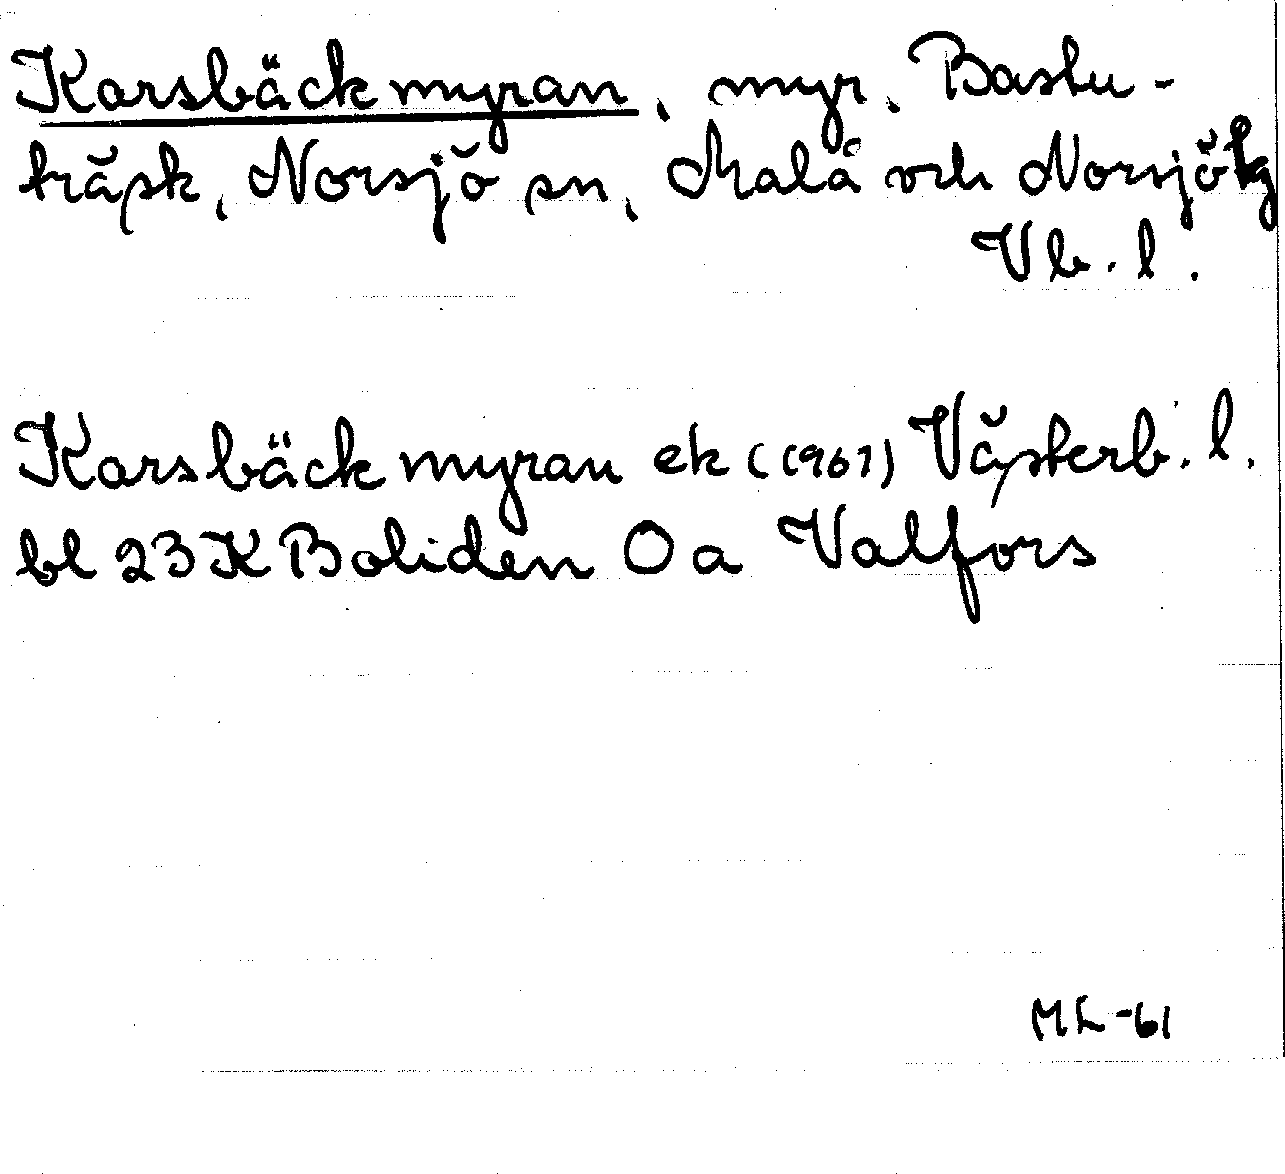 Korsbäckmyran, myr, Bastu-
träsk, Norsjö sn, Malå och Norsjö tg
Vb. l.
Korsbäckmyran ek (1961) Västerb. l.
bl 23 K Boliden O a Valfors
ML -61